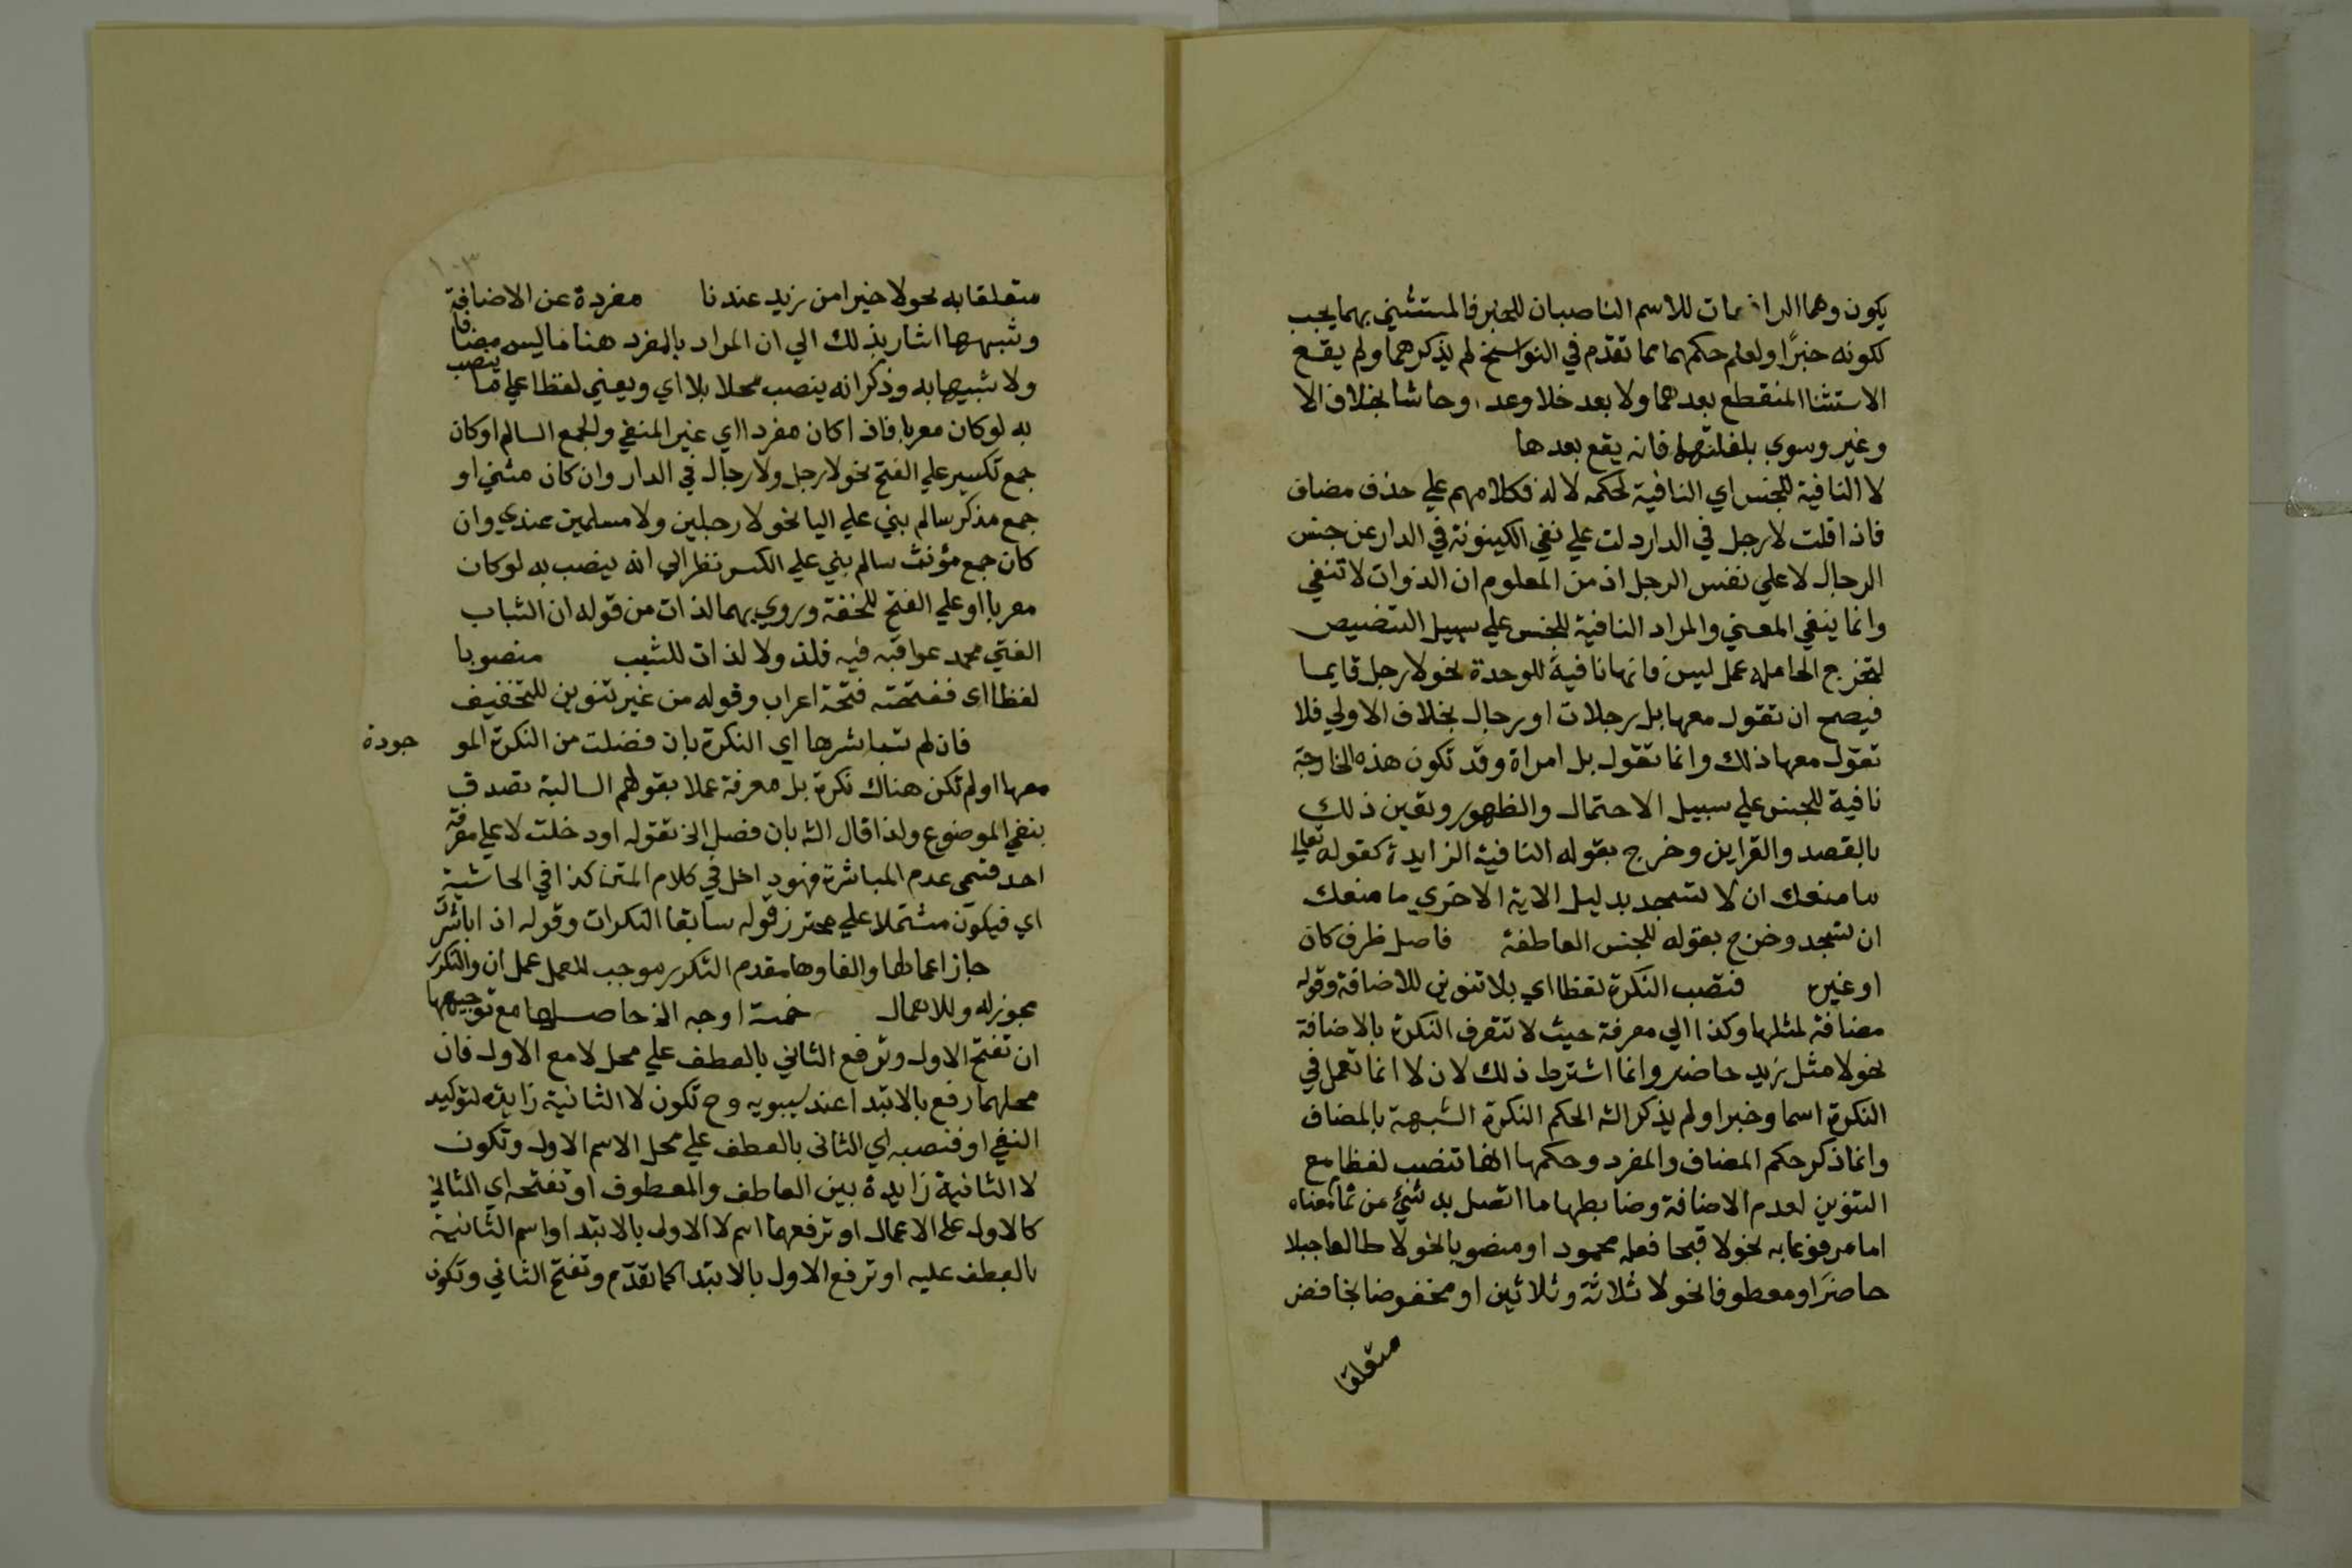 يكون وهما الرافعان للاسم الناصبان للخبر فالمستثني بهما يجب
لكونه خبرًا ولعلم حكمهما مما تقدم في النواسخ لم يذكرهما ولم يقع
الاستثنا المنقطع بعدهما ولا بعد خلا وعدا وحاشا بخلاف الا
وغير وسوي بلغاتها فانه يقع بعدها
لا النافية للجنس اي النافية لحكمه لا له فكلامهم علي حذف مضاف
فاذا قلت لا رجل في الدار دلت علي نفي الكينونة في الدار عن جنس
الرجال لا علي نفس الرجل اذ من المعلوم ان الذوات لا تنفي
وانما ينفي المعني والمراد النافية للجنس علي سبيل التنصيص
لتخرج العاملة عمل ليس فانها نافية للوحدة نحو لا رجل قايما
فيصح ان تقول معها بل رجلان او رجال بخلاف الاولي فلا
تقول معها ذلك وانما تقول بل امراة وقد تكون هذه الخارجة
نافية للجنس علي سبيل الاحتمال والظهور وتعين ذلك
بالقصد والقراين وخرج بقوله النافية الزايدة كقوله تعالي
ما منعك ان لا تسجد بدليل الاية الاخري ما منعك
ان تسجد وخرج بقوله للجنس العاطفة فاصل ظرف كان
او غيره فتصب النكرة لفظا اي بلا تنوين للاضافة وقوله
مضافة لمثلها وكذا الي معرفة حيث لا تتعرف النكرة بالاضافة
نحو لا مثل زيد حاضر وانما اشترط ذلك لان لا انما تعمل في
النكرة اسما وخبرا ولم يذكر الش الحكم النكرة الشبيهة بالمضاف
وانما ذكر حكم المضاف والمفرد وحكمها انها تنصب لفظا مع
التنوين لعدم الاضافة وضابطها ما اتصل به شئ من تمام معناه
اما مرفوعا به نحو لا قبحا فعله محمود او منصوبا نحو لا طالعا جبلا
حاضرَ او معطوفا نحو لا ثلاثة وثلاثين او مخفوضا بخافض
متعلقا
١٠٣
متعلقا به نحو لا خيرا من زيد عندنا مفردة عن الاضافة
وشبهها اشار بذلك الي ان المراد بالمفرد هنا ما ليس مضافا
ولا شبيها به وذكر انه ينصب محلا بلا اي ويعني لفظا علي ما ينصب
به لو كان معربا فاذا كان مفردا اي غير المنفي والجمع السالم او كان
جمع تكسير علي الفتح نحو لا رجل ولا رجال في الدار وان كان مثني او
جمع مذكر سالم بني علي اليا نحو لا رجلين ولا مسلمين عندي وان
كان جمع مؤنث سالم بني علي الكسر نظر الي انه ينصب به لو كان
معربا او علي الفتح للخفة وروي بهما لذات من قوله ان الشباب
الفتي محمد عواقبه فيه فلذ ولا لذات للشيب منصوبا
لفظا اي ففتحته فتحة اعراب وقوله من غير تنوين للتخفيف
فان لم تباشرها اي النكرة بان فضلت من النكرة المو جودة
معها او لم تكن هناك نكرة بل معرفة عملا بقولهم السالبة تصدق
بنفي الموضوع ولذا قال الش بان فصل الخ تقوله او دخلت لا علي معرفة
احد قسمي عدم المباشرة فهو داخل في كلام المتن كذا في الحاشية
اي فيكون مشتملا علي محترز قوله سابقا النكرات وقوله اذا باشرت
جاز اعمالها والغاوها مقدم التكرر موجب للعمل عمل ان والتكرر
مجوز له وللاهمال خمسة اوجه الخ حاصلها مع توجيهها
ان تفتح الاول وترفع الثاني بالعطف علي محل لا مع الاول فان
محلهما رفع بالابتدا عند سيبويه وح تكون لا الثانية زايدة لتوكيد
النفي او فنصبه اي الثاني بالعطف علي محل الاسم الاول وتكون
لا الثانية زايدة بين العاطف والمعطوف او تفتحه اي الثاني
كالاول علي الاعمال او ترفعهما اسم لا الاولي بالابتدا واسم الثانية
بالعطف عليه او ترفع الاول بالابتدا كما تقدّم وتفتح الثاني وتكون